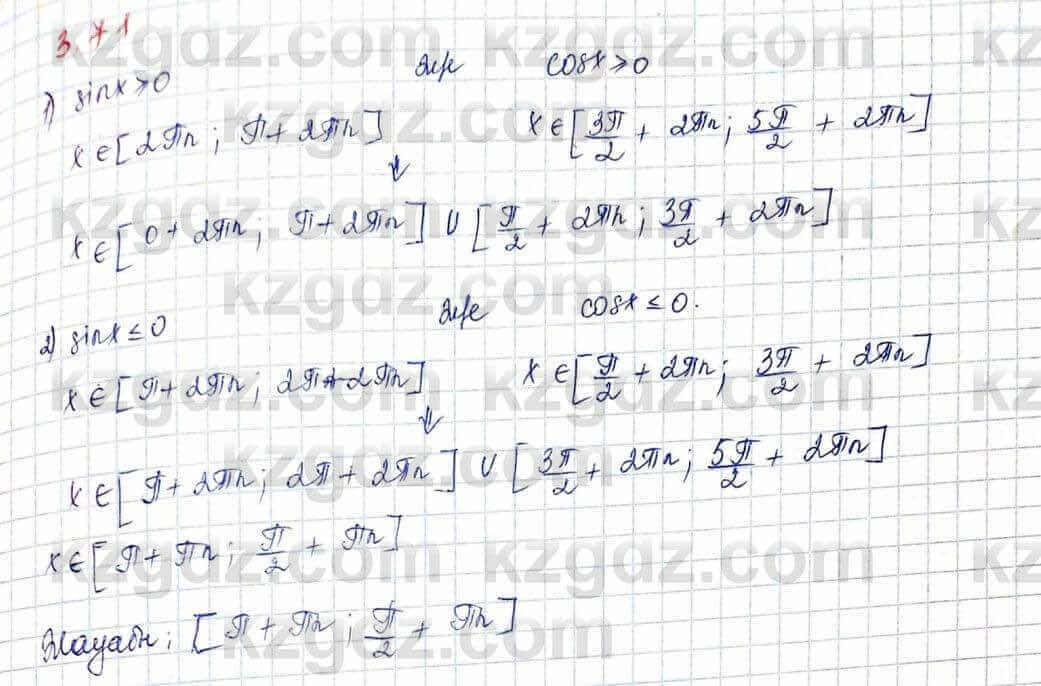 3.71
1) sinx>0 және cosx>0
x∈[2πn; π+2πn] x∈[3π/2 + 2πn; 5π/2 + 2πn]
↓
x∈[0+2πn; π+2πn] ∪ [π/2 + 2πn; 3π/2 + 2πn]
2) sinx≤0 және cosx≤0.
x∈[π+2πn; 2π+2πn] x∈[π/2 + 2πn; 3π/2 + 2πn]
↓
x∈[π+2πn; 2π+2πn] ∪ [3π/2 + 2πn; 5π/2 + 2πn]
x∈[π+πn; π/2 + πn]
Жауабы: [π+πn; π/2 + πn]
kzgdz.com